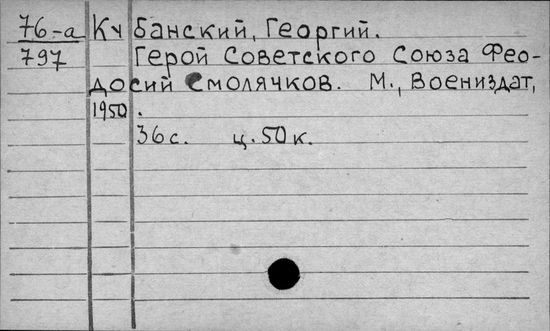 76-а Кубанский, Георгий.
797 Герой Советского Союза Фео-
досий Смолячков. М., Воениздат,
1950.
36 с. ц. 50 к.